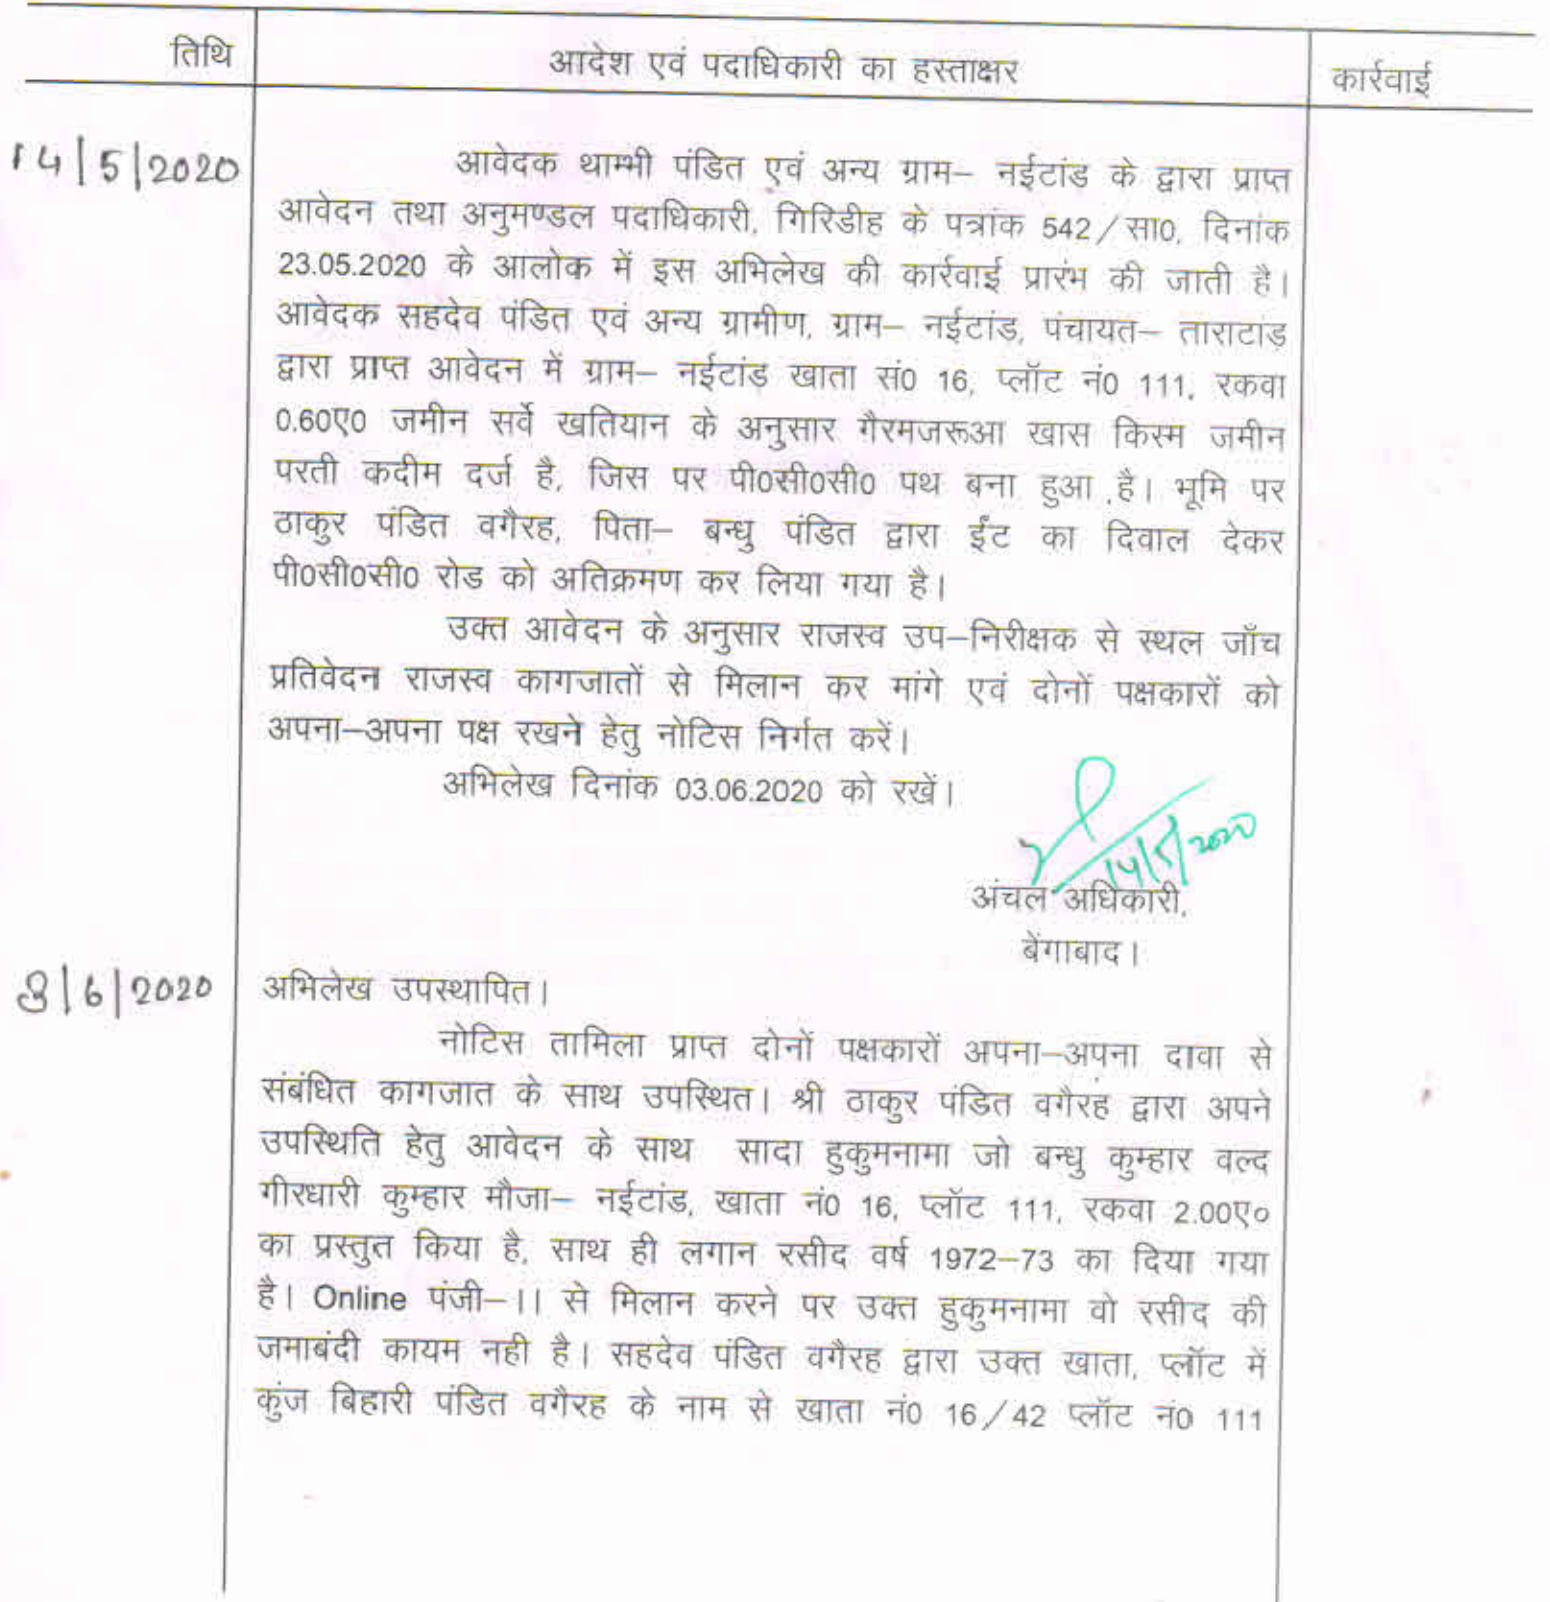 तिथि आदेश एवं पदाधिकारी का हस्ताक्षर कार्रवाई
14/5/2020 आवेदक थाम्भी पंडित एवं अन्य ग्राम– नईटांड के द्वारा प्राप्त
आवेदन तथा अनुमण्डल पदाधिकारी, गिरिडीह के पत्रांक 542/सा0, दिनांक
23.05.2020 के आलोक में इस अभिलेख की कार्रवाई प्रारंभ की जाती है।
आवेदक सहदेव पंडित एवं अन्य ग्रामीण, ग्राम– नईटांड, पंचायत– ताराटांड़
द्वारा प्राप्त आवेदन में ग्राम– नईटांड़ खाता सं0 16, प्लॉट नं0 111, रकवा
0.60ए0 जमीन सर्वे खतियान के अनुसार गैरमजरूआ खास किस्म जमीन
परती कदीम दर्ज है, जिस पर पी0सी0सी0 पथ बना हुआ है। भूमि पर
ठाकुर पंडित वगैरह, पिता– बन्धु पंडित द्वारा ईंट का दिवाल देकर
पी0सी0सी0 रोड को अतिक्रमण कर लिया गया है।
उक्त आवेदन के अनुसार राजस्व उप–निरीक्षक से स्थल जाँच
प्रतिवेदन राजस्व कागजातों से मिलान कर मांगे एवं दोनों पक्षकारों को
अपना–अपना पक्ष रखने हेतु नोटिस निर्गत करें।
अभिलेख दिनांक 03.06.2020 को रखें।
14/5/2020
अंचल अधिकारी,
बेंगाबाद।
3/6/2020 अभिलेख उपस्थापित।
नोटिस तामिला प्राप्त दोनों पक्षकारों अपना–अपना दावा से
संबंधित कागजात के साथ उपस्थित। श्री ठाकुर पंडित वगैरह द्वारा अपने
उपस्थिति हेतु आवेदन के साथ सादा हुकुमनामा जो बन्धु कुम्हार वल्द
गीरधारी कुम्हार मौजा– नईटांड, खाता नं0 16, प्लॉट 111, रकवा 2.00ए०
का प्रस्तुत किया है, साथ ही लगान रसीद वर्ष 1972–73 का दिया गया
है। Online पंजी–।। से मिलान करने पर उक्त हुकुमनामा वो रसीद की
जमाबंदी कायम नही है। सहदेव पंडित वगैरह द्वारा उक्त खाता, प्लॉट में
कुंज बिहारी पंडित वगैरह के नाम से खाता नं0 16/42 प्लॉट नं0 111